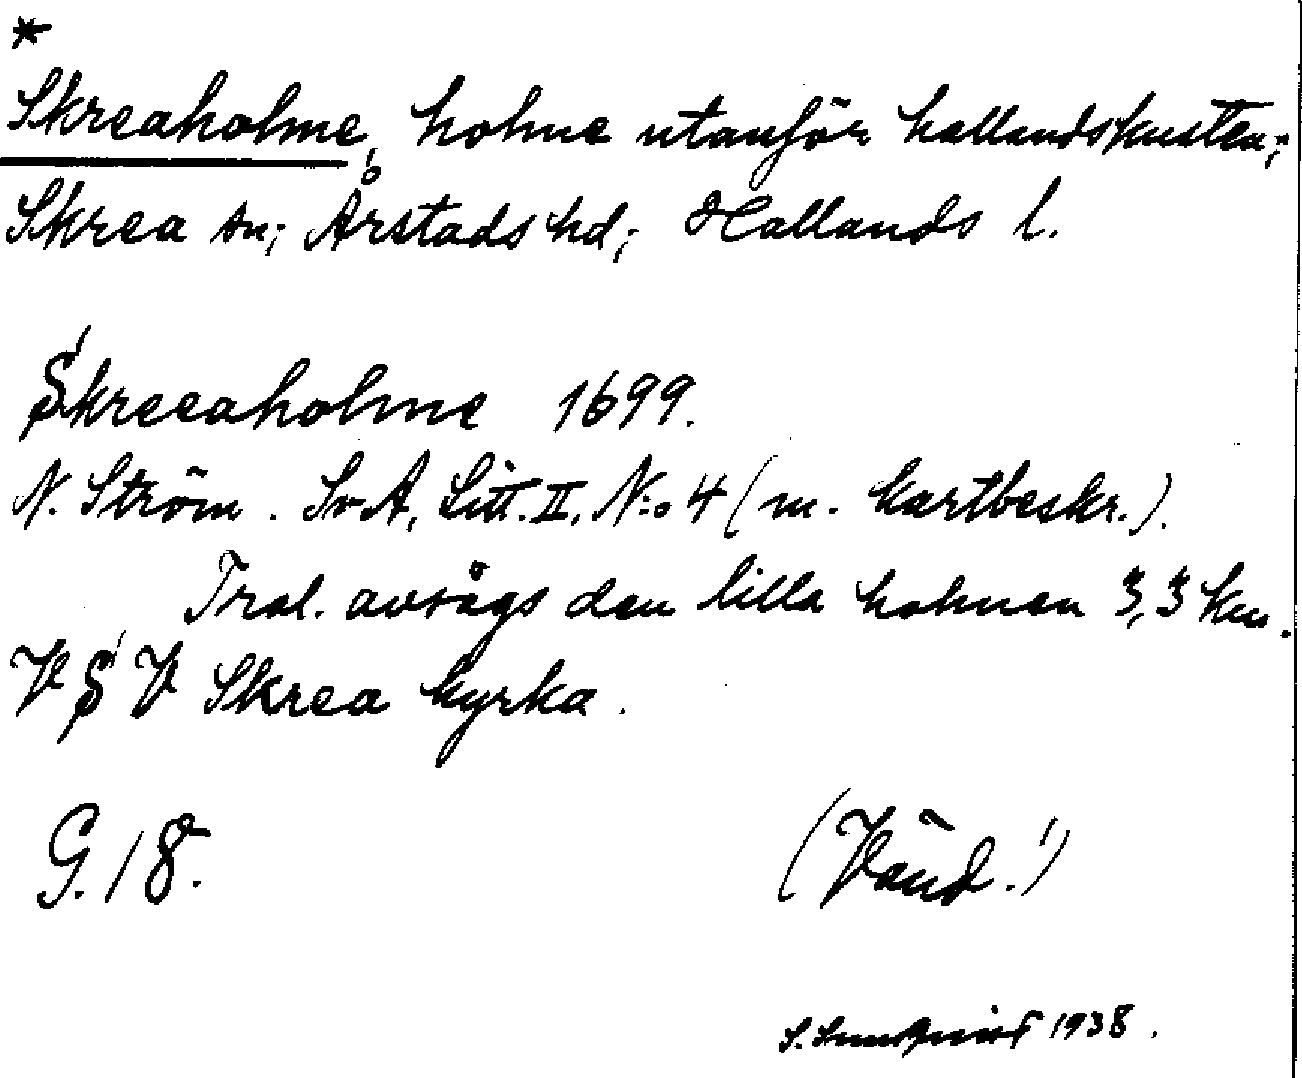 *
Skreaholme, holme utanför hallandskusten;
Skrea sn; Årstads hd; Hallands l.
Skreeaholme 1699.
N. Ström. SvA, Litt. II, N:o 4 (m. kartbeskr.).
Trol. avsågs den lilla holmen 3,3 km.
V S V Skrea kyrka.
G. 18.
(Vänd!)
S. 1938.